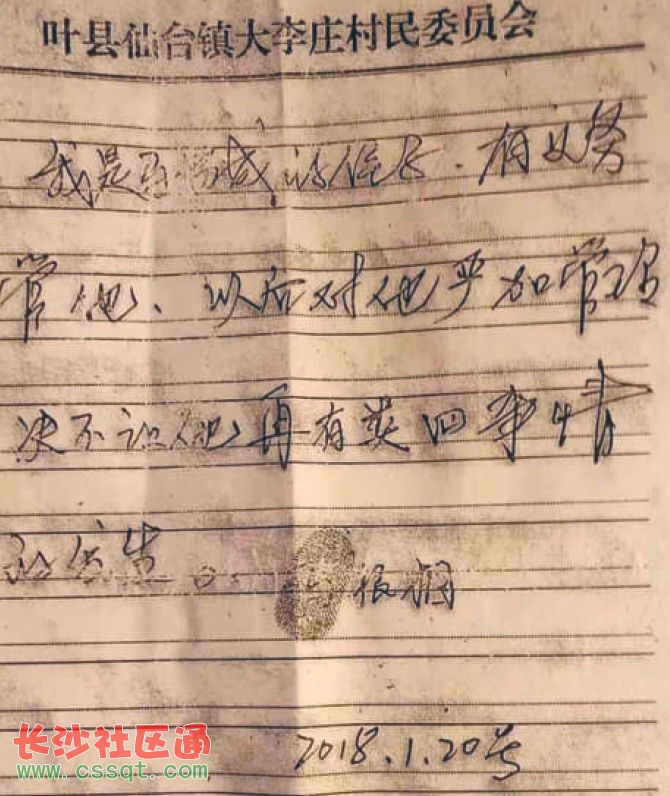 叶县仙台镇大李庄村民委员会
我是 成的侄子.有义务
管他、以后对他严加管理
决不让他再有类似事情
的发生。
根钢
2018.1.20号
长沙社区通
www.cssqt.com